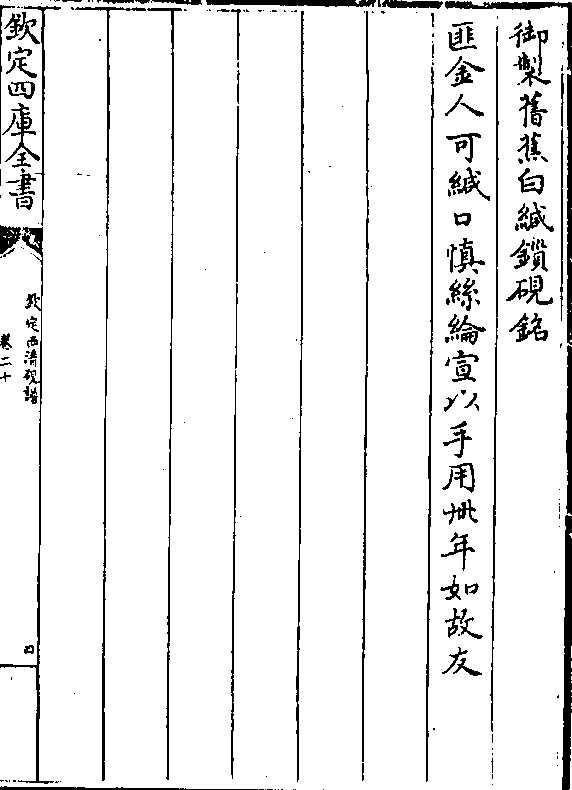 御製舊蕉白緘鎖硯銘
匪金人可緘口慎絲綸宣以手用卌年如故友
欽定四庫全書
欽定西清硯譜
卷二十
四